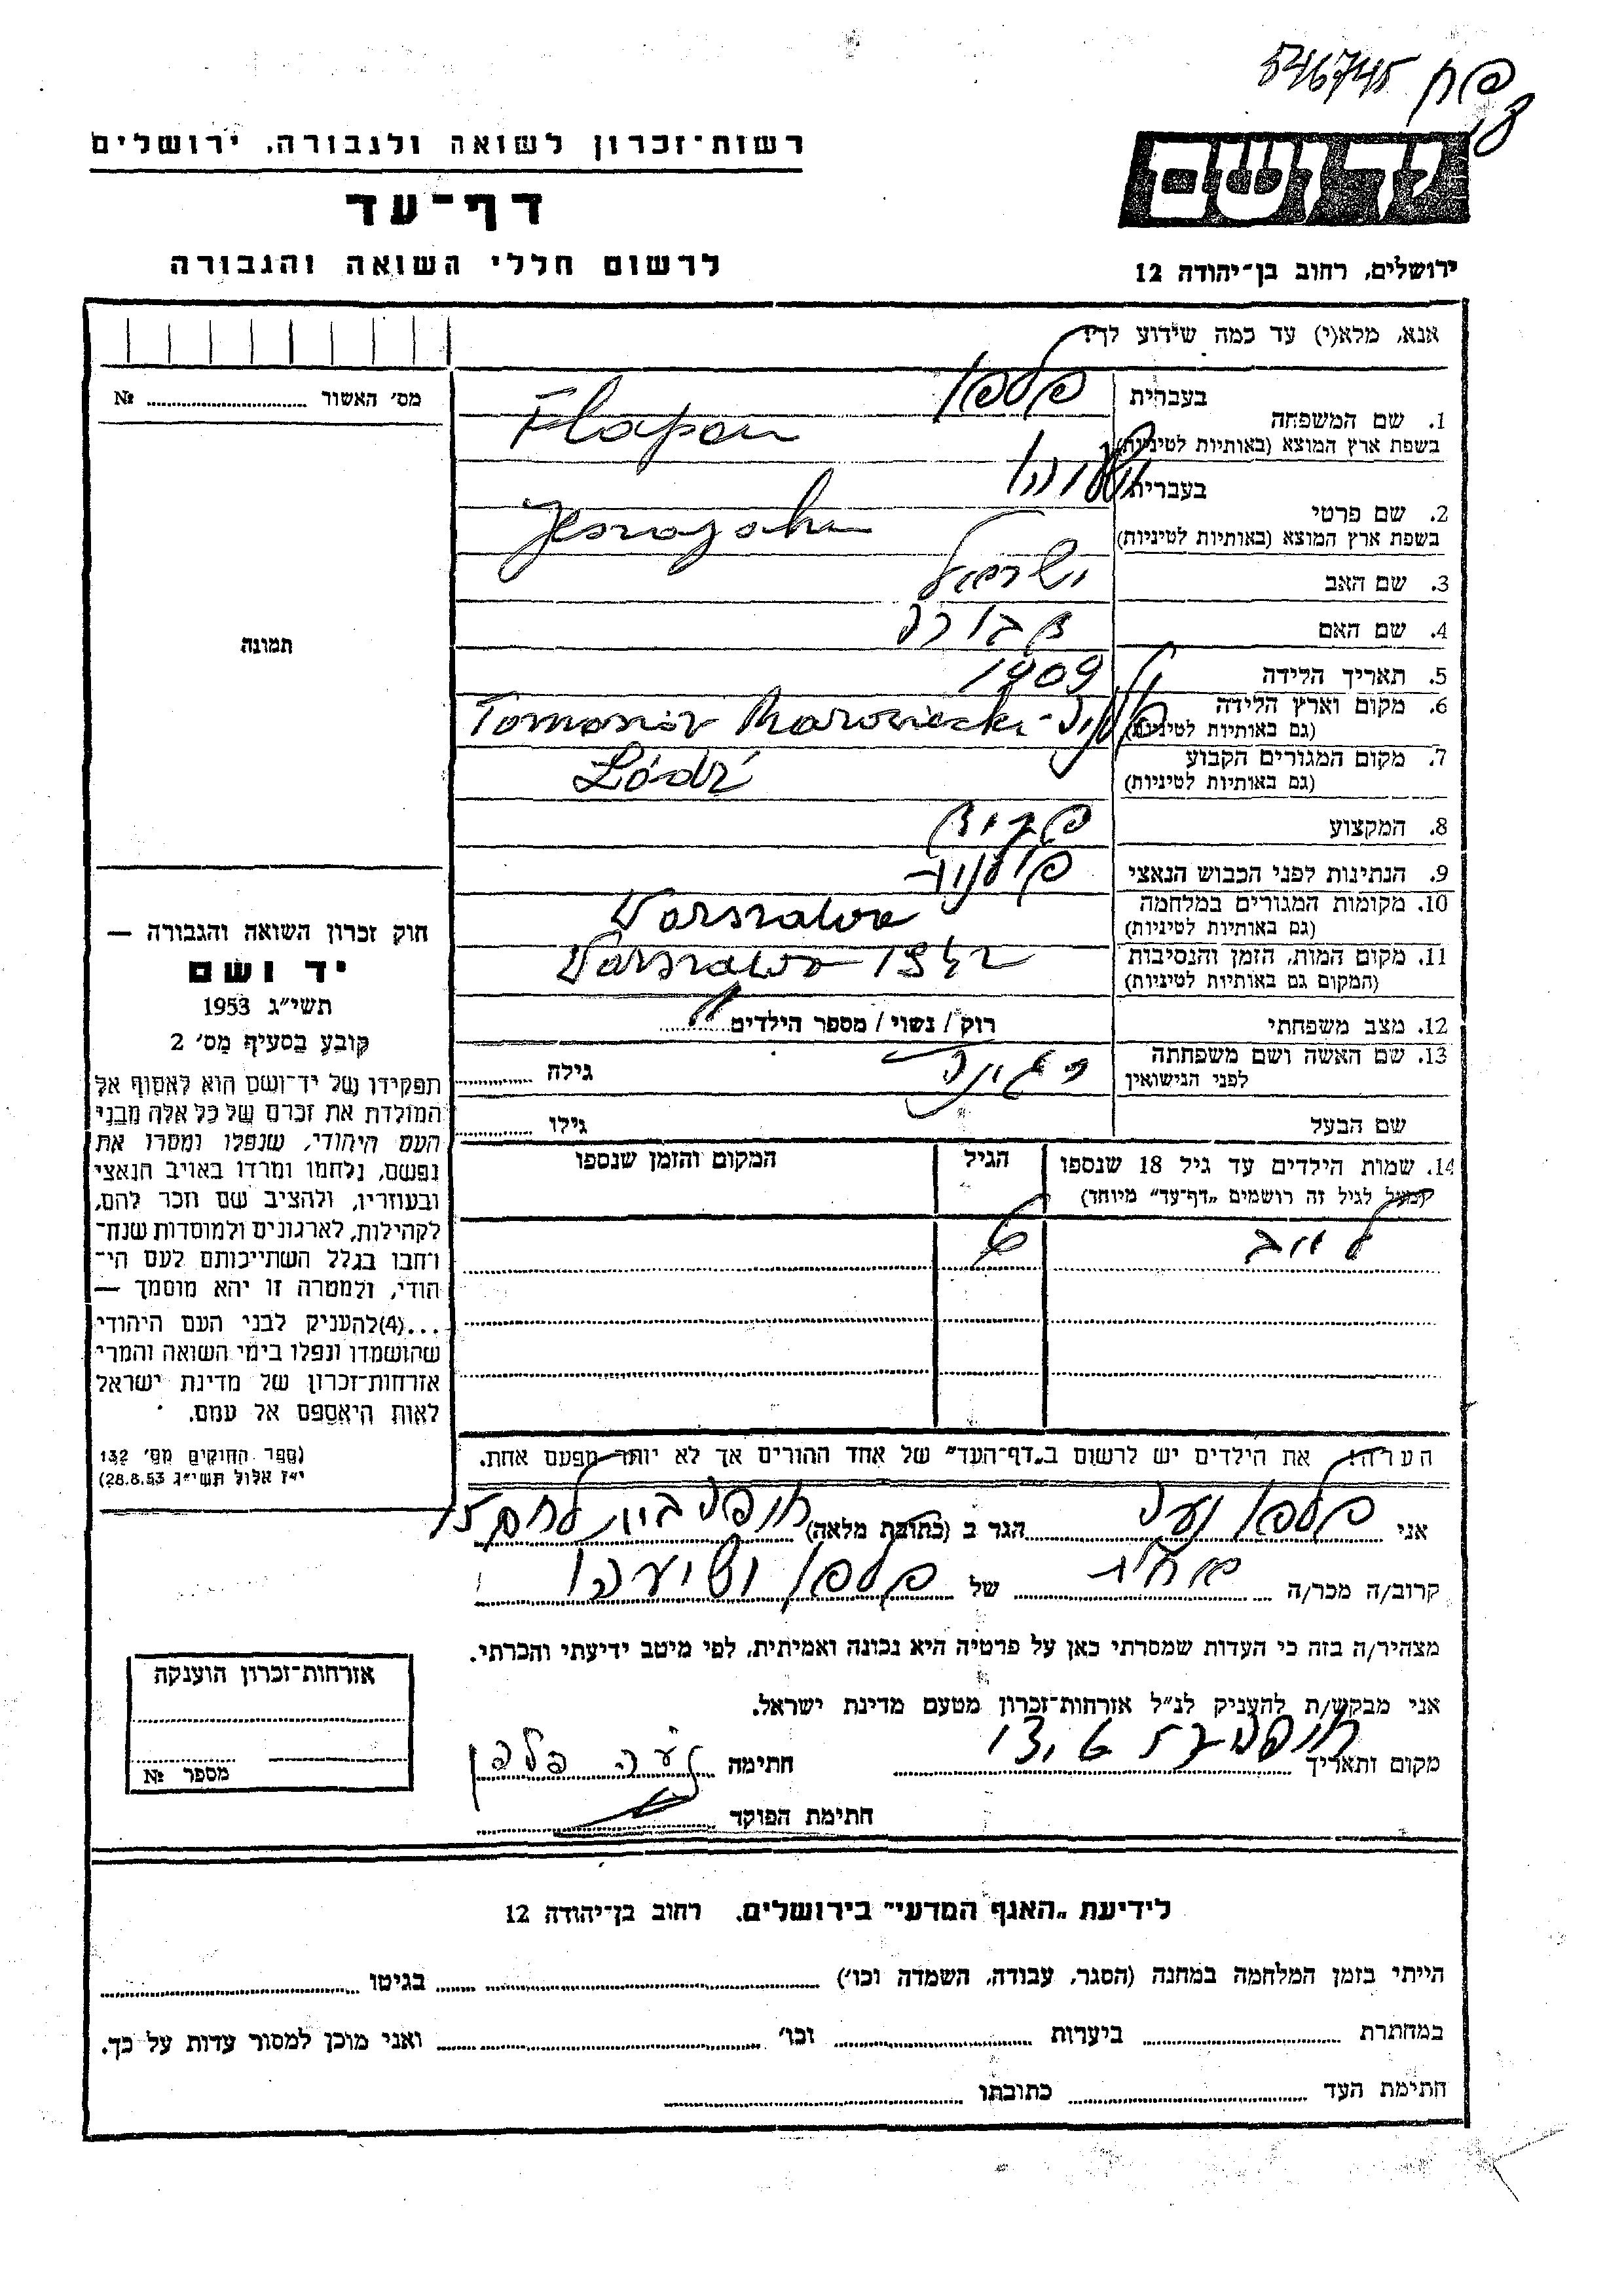 546745
רשות־זכרון לשואה ולגבורה. ירושלים
דף־עד
לרשום חללי השואה והגבורה
יד ושם
ירושלים, רחוב בן־יהודה 12
אנא, מלא(י) עד כמה שידוע לך!
מס׳ האשור №
1. שם המשפחה
בעברית פלפן
בשפת ארץ המוצא (באותיות לטיניות) Flapan
2. שם פרטי
בעברית
בשפת ארץ המוצא (באותיות לטיניות)
3. שם האב ישראל
4. שם האם דבורה
5. תאריך הלידה 1909
6. מקום וארץ הלידה
(גם באותיות לטיניות) Tomaszów Mazowiecki - פולין
7. מקום המגורים הקבוע
(גם באותיות לטיניות) Łódź
8. המקצוע
9. הנתינות לפני הכבוש הנאצי פולנית
10. מקומות המגורים במלחמה
(גם באותיות לטיניות) Warszawa
11. מקום המות, הזמן והנסיבות
(המקום גם באותיות לטיניות) Warszawa 1942
12. מצב משפחתי רוק / נשוי / מספר הילדים
13. שם האשה ושם משפחתה
לפני הנישואין
גילה
שם הבעל גילו
14. שמות הילדים עד גיל 18 שנספו
(מעל לגיל זה רושמים „דף־עד״ מיוחד)
הגיל
המקום והזמן שנספו
6
תמונה
חוק זכרון השואה והגבורה —
יד ושם
תשי״ג 1953
קובע בסעיף מס׳ 2
תפקידו של יד־ושם הוא לאסוף אל
המולדת את זכרם של כל אלה מבני
העם היהודי, שנפלו ומסרו את
נפשם, נלחמו ומרדו באויב הנאצי
ובעוזריו, ולהציב שם וזכר להם,
לקהילות, לארגונים ולמוסדות שנח־
רחבו בגלל השתייכותם לעם הי־
הודי, ולמטרה זו יהא מוסמך —
...(4)להעניק לבני העם היהודי
שהושמדו ונפלו בימי השואה והמרי
אזרחות־זכרון של מדינת ישראל
לאות היאספם אל עמם.
(ספר החוקים מס׳ 132
י״ז אלול תשי״ג 28.8.53)
הערה: את הילדים יש לרשום ב„דף־העד״ של אחד ההורים אך לא יותר מפעם אחת.
אני פלפן הגר ב (כתובת מלאה) חיפה בית לחם
קרוב/ה מכר/ה של פלפן ישעיהו
מצהיר/ה בזה כי העדות שמסרתי כאן על פרטיה היא נכונה ואמיתית, לפי מיטב ידיעתי והכרתי.
אני מבקש/ת להעניק לנ״ל אזרחות־זכרון מטעם מדינת ישראל.
מקום ותאריך חתימה פלפן
חתימת הפוקד
אזרחות־זכרון הוענקה
מספר №
לידיעת „האגף המדעי״ בירושלים. רחוב בן־יהודה 12
הייתי בזמן המלחמה במחנה (הסגר, עבודה, השמדה וכו׳) בגיטו
במחתרת ביערות וכו׳ ואני מוכן למסור עדות על כך.
חתימת העד כתובתו